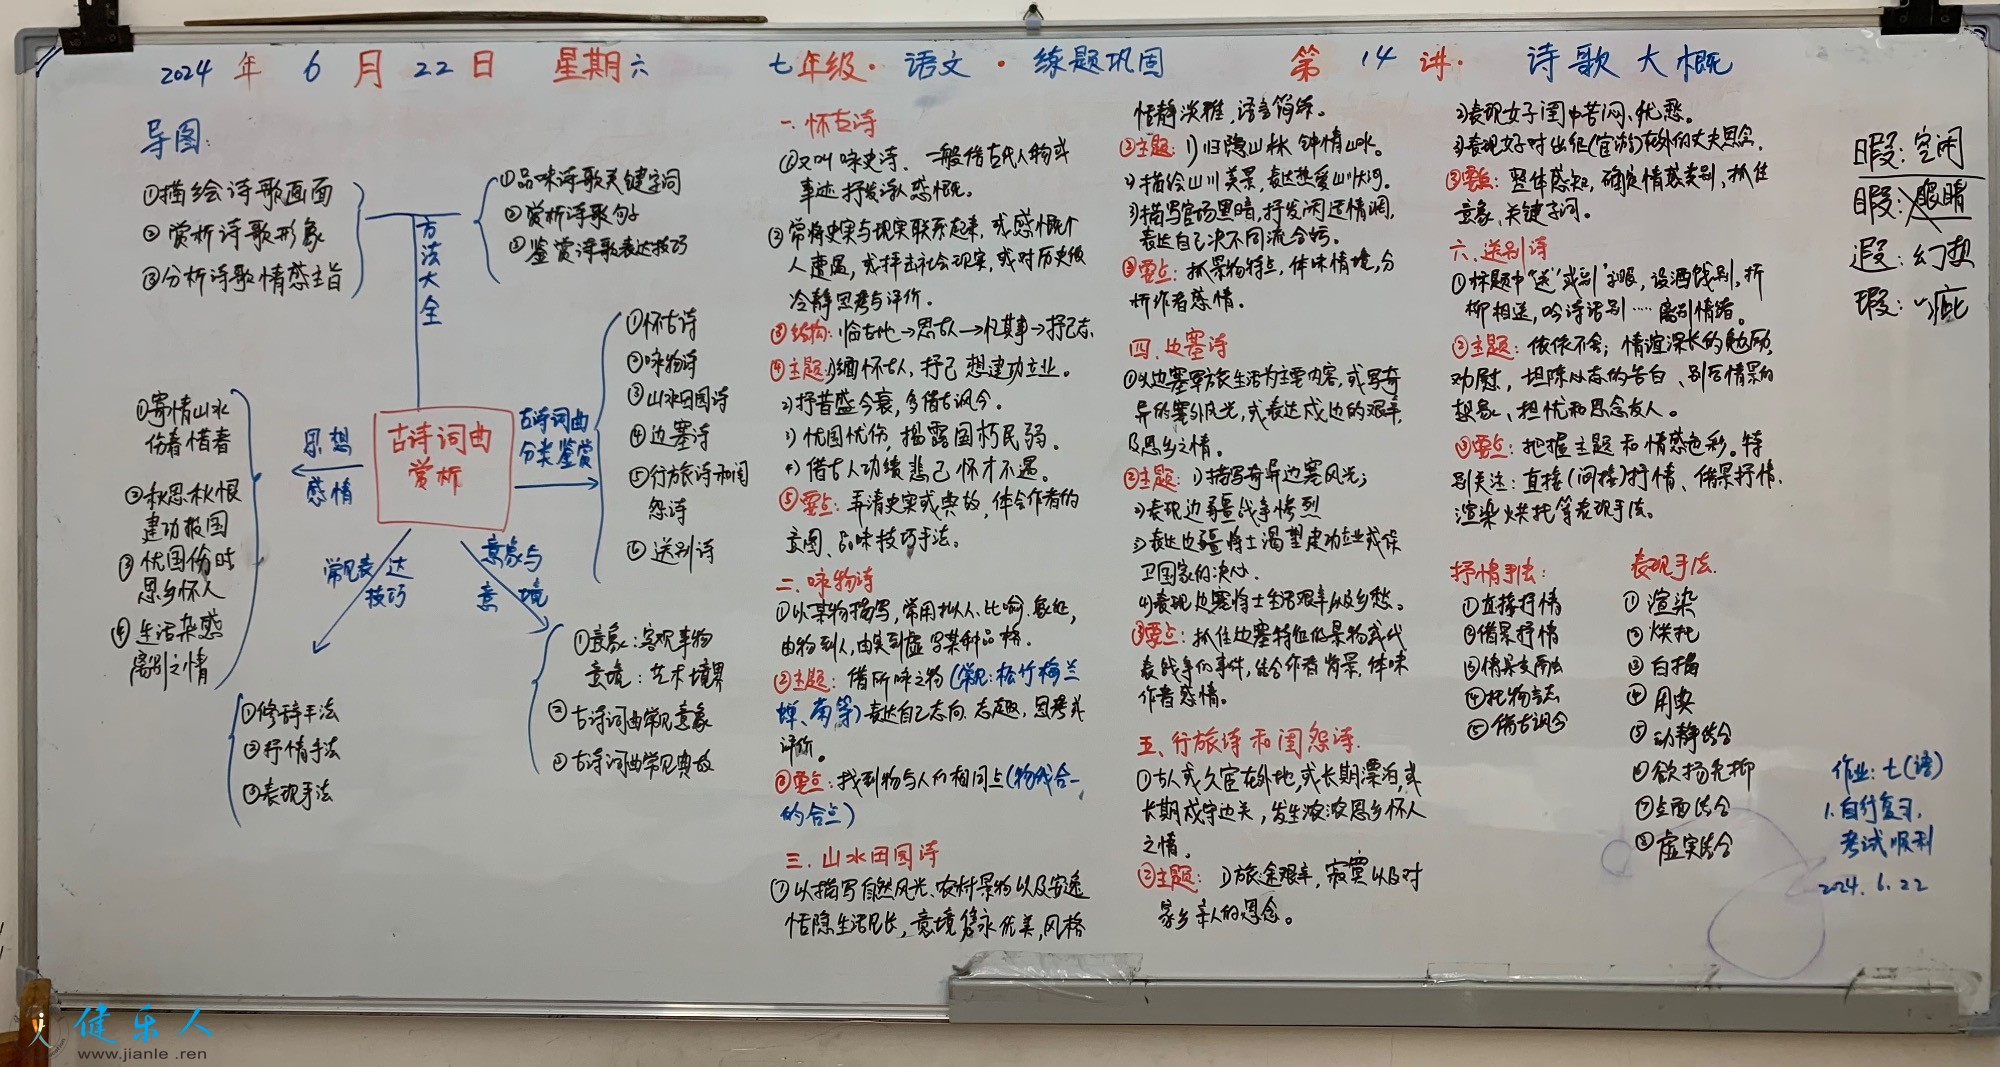 2024 年 6 月 22 日 星期六 七年级·语文·练题巩固 第 14 讲· 诗歌大概
导图:
①描绘诗歌画面
② 赏析诗歌形象
③分析诗歌情感主旨
方法大全
①品味诗歌关键字词
②赏析诗歌句子
③鉴赏诗歌表达技巧
古诗词曲
赏析
古诗词曲
分类鉴赏
①怀古诗
②咏物诗
③山水田园诗
④边塞诗
⑤行旅诗和闺
怨诗
⑥送别诗
思想
感情
①寄情山水
伤春惜春
②秋思秋恨
建功报国
③忧国伤时
思乡怀人
④生活杂感
离别之情
常见表达
技巧
①修辞手法
②抒情手法
③表现手法
意象与
意境
①意象:客观事物
意境:艺术境界
②古诗词曲常见意象
③古诗词曲常见典故
一.怀古诗
①又叫咏史诗.一般借古代人物或
事迹抒发诗人感慨。
②常将史实与现实联系起来,或感慨个
人遭遇,或抨击社会现实,或对历史做
冷静思考与评价.
③结构:临古地→思古人→忆其事→抒己志.
④主题:1)缅怀古人,抒己想建功立业。
2)抒昔盛今衰,多借古讽今.
3)忧国忧伤,揭露国朽民弱.
4)借古人功绩悲己怀才不遇。
⑤要点:弄清史实或典故,体会作者的
意图、品味技巧手法。
二.咏物诗
①以某物描写,常用拟人、比喻.象征,
由物到人,由实到虚写某种品格.
②主题:借所咏之物(常见:松竹梅兰
蝉、菊等)表达自己志向.志趣,思考或
评价。
③要点:找到物与人的相同点(物我合一
的合点)
三.山水田园诗
①以描写自然风光、农村景物以及安逸
恬隐生活见长,意境隽永优美,风格
恬静淡雅,语言简练。
②主题:1)归隐山林 钟情山水。
2)描绘山川美景,表达热爱山河。
3)描写官场黑暗,抒发闲适情调,
表达自己决不同流合污。
③要点:抓景物特点,体味情境,分
析作者感情。
四.边塞诗
①以边塞军旅生活为主要内容,或写奇
异的塞外风光,或表达戍边的艰辛
及思乡之情。
②主题:1)描写奇异边塞风光;
2)表现边疆战争惨烈
3)表达边疆将士渴望建功立业或保
卫国家的决心.
4)表现边塞将士生活艰辛以及乡愁。
③要点:抓住边塞特征的景物或代
表战争的事件,结合作者背景,体味
作者感情。
五、行旅诗和闺怨诗.
①古人或久宦在外地,或长期漂泊,或
长期戍守边关,发生浓浓思乡怀人
之情。
②主题:1)旅途艰辛,寂寞以及对
家乡亲人的思念。
2)表现女子闺中苦闷、忧愁。
3)表现女子对出征(宦游)在外的丈夫思念.
③要点:整体感知,确定情感类别,抓住
意象、关键字词。
六、送别诗
①标题中"送"或"别"字眼,设酒饯别,折
柳相送,吟诗话别……离别情绪。
②主题:依依不舍;情谊深长的勉励
劝慰,坦陈心志的告白、别后情景的
想象、担忧和思念友人。
③要点:把握主题和情感色彩.特
别关注:直接(间接)抒情、借景抒情.
渲染烘托等表现手法。
抒情手法:
①直接抒情
②借景抒情
③情景交融
④托物言志
⑤借古讽今
表现手法.
①渲染
②烘托
③白描
④用典
⑤动静结合
⑥欲扬先抑
⑦点面结合
⑧虚实结合
暇:空闲
睱:眼睛
遐:幻想
瑕:~疵
作业:七(语)
1.自行复习,
考试顺利
2024.6.22
健乐人
www.jianle.ren